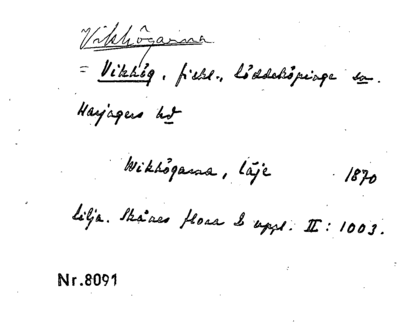 Vikhögarna
= Vikhög, fiskl., Löddeköpinge sn.
Harjagers hd
Wikhögarna, läje 1870
Lilja. Skånes flora 2 uppl. II: 1003.
Nr.8091